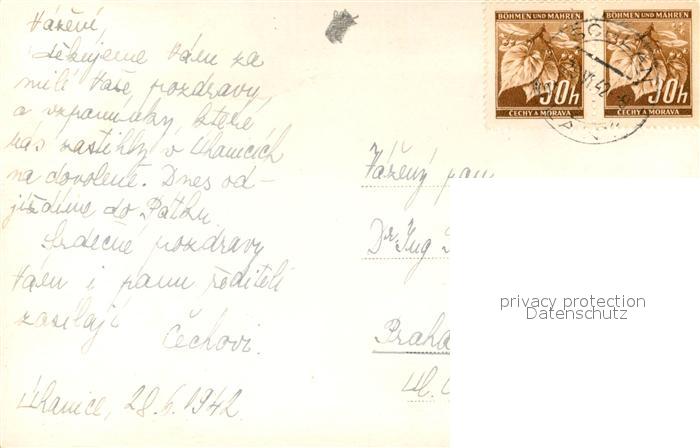 Vážení,
děkujeme Vám za
milé Vaše pozdravy
a vzpomínky, které
nás zastihly v Úhonicích
na dovolené. Dnes od-
jíždíme do
Srdečné pozdravy
Vám i panu řediteli
zasílají
Čechovi.
Úhonice, 28.6.1942.
BÖHMEN UND MÄHREN
50h
ČECHY A MORAVA
BÖHMEN UND MÄHREN
50h
ČECHY A MORAVA
Vážený pan
Dr Ing
Praha
Ul.
privacy protection
Datenschutz